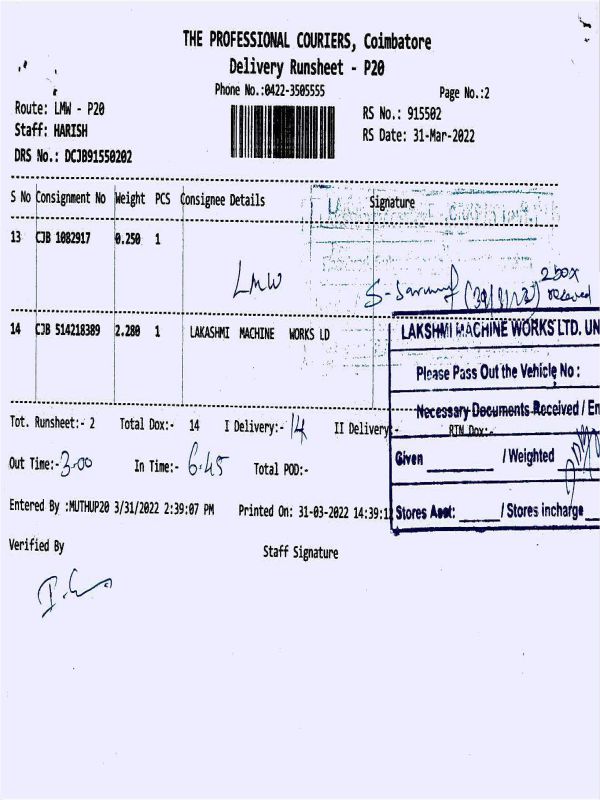 THE PROFESSIONAL COURIERS, Coimbatore
Delivery Runsheet - P20
Phone No.:0422-3505555
Page No.:2
Route: LMW - P20
RS No.: 915502
Staff: HARISH
RS Date: 31-Mar-2022
DRS No.: DCJB91550202
S No Consignment No Weight PCS Consignee Details Signature
13 CJB 1082917 0.250 1
LMW
2 box
received
14 CJB 514218389 2.280 1 LAKASHMI MACHINE WORKS LD
LAKSHMI MACHINE WORKS LTD. UN
Please Pass Out the Vehicle No :
Necessary Documents Received / En
Tot. Runsheet:- 2 Total Dox:- 14 I Delivery:- 14 II Delivery:- RTN Dox:-
Given / Weighted
Out Time:- 3-00 In Time:- 6-45 Total POD:-
Entered By :MUTHUP20 3/31/2022 2:39:07 PM Printed On: 31-03-2022 14:39:12
Stores Asst: / Stores incharge
Verified By Staff Signature